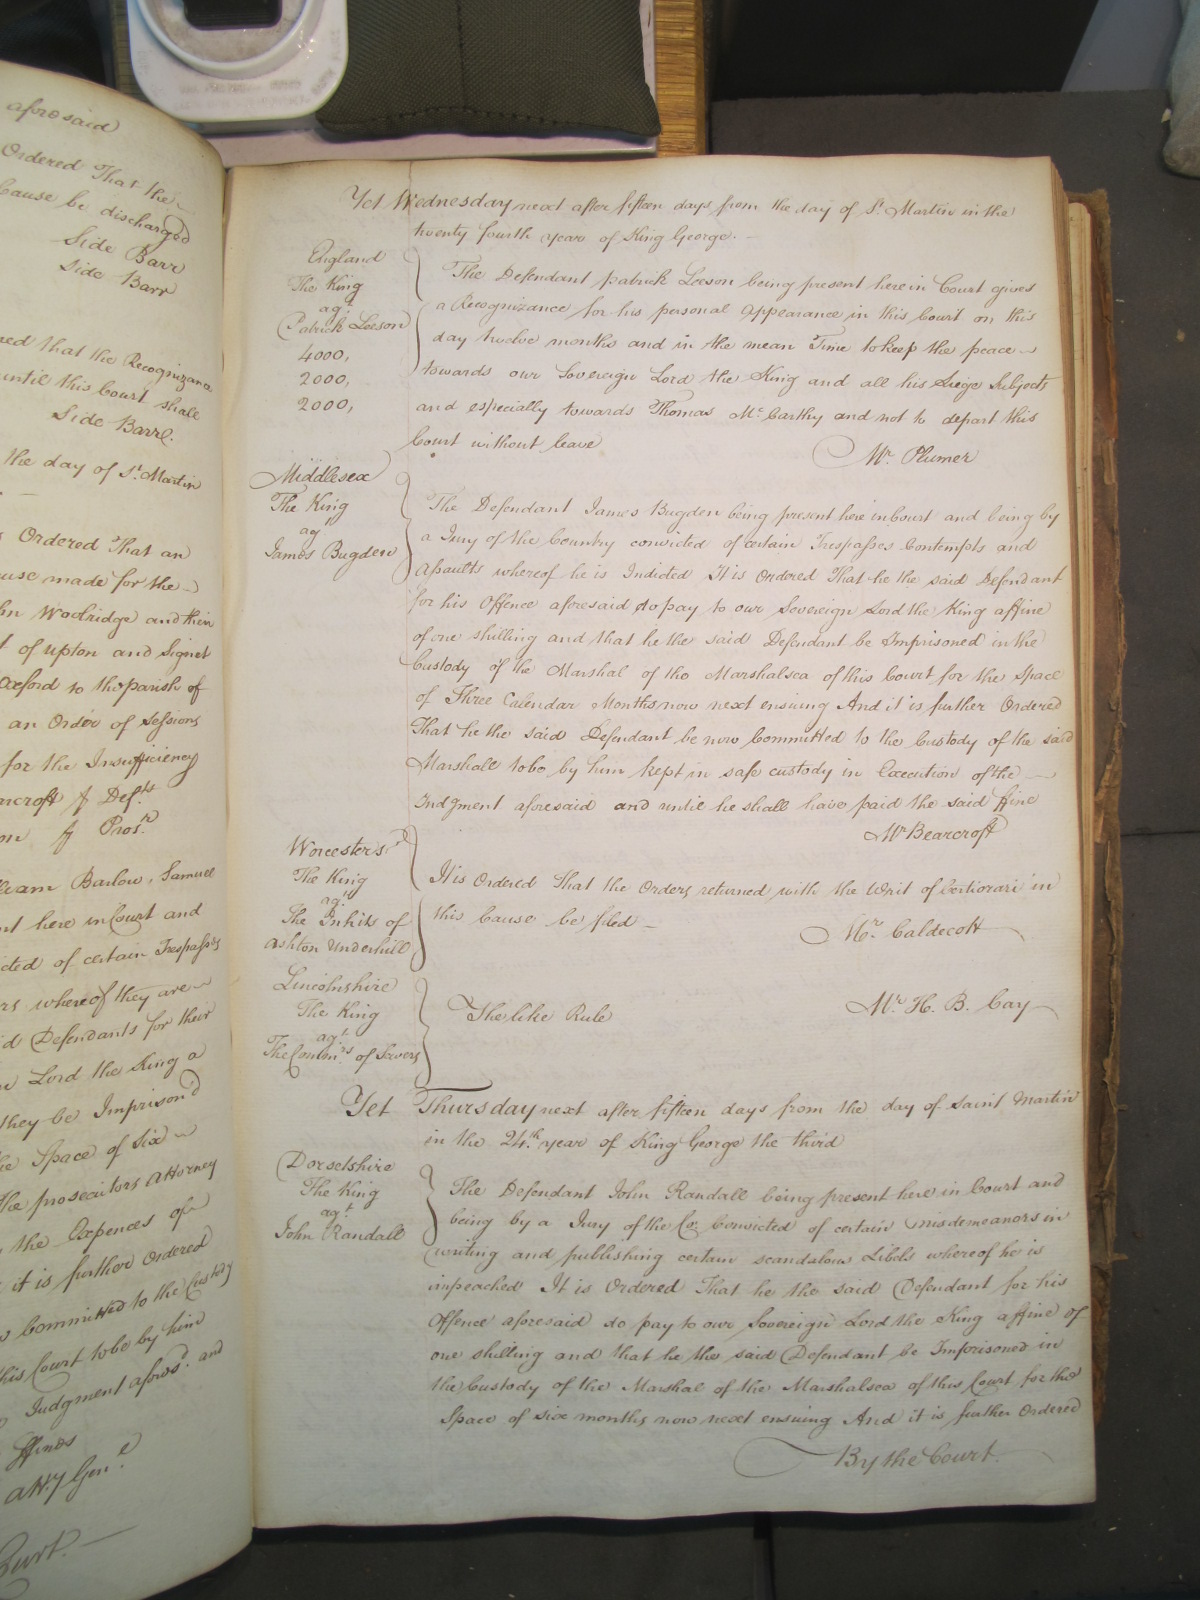 aforesaid
Ordered That the
Cause be discharged
Side Barr
Side Barr
red that the Recognizance
until this Court shall
Side Barre.
the day of St. Martin
Ordered That an
cause made for the
hn Woolridge and their
of upton and Signet
oxford to the parish of
an Order of Sessions
for the Insufficiency
arcroft for Defts
on for Prosr
lliam Barlow, Samuel
nt here in Court and
icted of certain Trespasses
rs whereof they are
id Defendants for their
n Lord the King a
they be Imprison'd
he Space of Six
the prosecutors Attorney
the Expences of
it is further Ordered
Committed to the Custody
this Court to be by him
Judgment aforesd. and
ffines
Atty Genl.
Court.
Yet Wednesday next after fifteen days from the day of St. Martin in the
twenty fourth year of King George.
England
The King
agt.
Patrick Leeson
4000,
2000,
2000,
The Defendant Patrick Leeson being present here in Court gives
a Recognizance for his personal Appearance in this Court on this
day twelve months and in the mean Time to keep the peace
towards our Sovereign Lord the King and all his Liege Subjects
and especially towards Thomas McCarthy and not to depart this
Court without leave
Mr. Plumer
Middlesex
The King
agt
James Bugden
The Defendant James Bugden being present here in Court and being by
a Jury of the Country convicted of certain Trespasses Contempts and
Assaults whereof he is Indicted It is Ordered That he the said Defendant
for his Offence aforesaid do pay to our Sovereign Lord the King affine
of one shilling and that he the said Defendant be Imprisoned in the
Custody of the Marshal of the Marshalsea of this Court for the Space
of Three Calendar Months now next ensuing And it is further Ordered
That he the said Defendant be now Committed to the Custody of the said
Marshall to be by him kept in safe custody in Execution of the
Judgment aforesaid and until he shall have paid the said ffine
Mr Bearcroft
Worcestersr.
The King
agt.
The Inhits of
Ashton Underhill
It is Ordered That the Orders returned with the Writ of Certiorari in
this Cause be filed
Mr. Caldecott
Lincolnshire
The King
agt.
The Commrs of Sewers
The like Rule
Mr. H. B. Cay
Yet Thursday next after fifteen days from the day of Saint Martin
in the 24th. year of King George the third
Dorsetshire
The King
agt.
John Randall
The Defendant John Randall being present here in Court and
being by a Jury of the Co: Convicted of certain misdemeanors in
writing and publishing certain scandalous Libels whereof he is
impeached It is Ordered That he the said Defendant for his
Offence aforesaid do pay to our Sovereign Lord the King affine of
one shilling and that he the said Defendant be Imprisoned in
the Custody of the Marshal of the Marshalsea of this Court for the
Space of six months now next ensuing And it is further Ordered
By the Court.